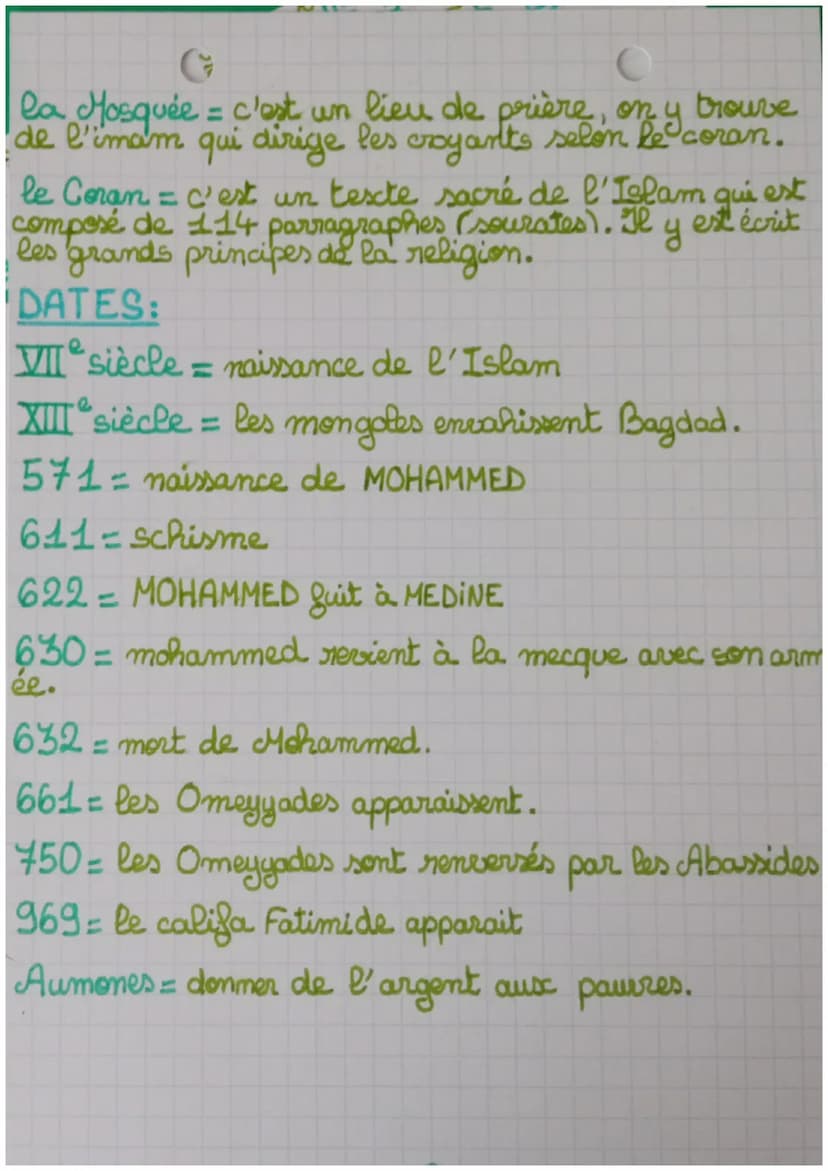 la Mosquée = c'est un lieu de prière, on y trouve
de l'imam qui dirige les croyants selon le coran.
le Coran = c'est un texte sacré de l'Islam qui est
composé de 114 parragraphes (sourates). Il y est écrit
les grands principes de la religion.
DATES:
VIIe siècle = naissance de l'Islam
XIIIe siècle = les mongoles envahissent Bagdad.
571 = naissance de MOHAMMED
611 = schisme
622 = MOHAMMED fuit à MEDiNE
630 = mohammed revient à la mecque avec son arm
ée.
632 = mort de Mohammed.
661 = les Omeyyades apparaissent.
750 = les Omeyyades sont renversés par les Abassides
969 = le califa Fatimide apparait
Aumones = donner de l'argent aux pauvres.